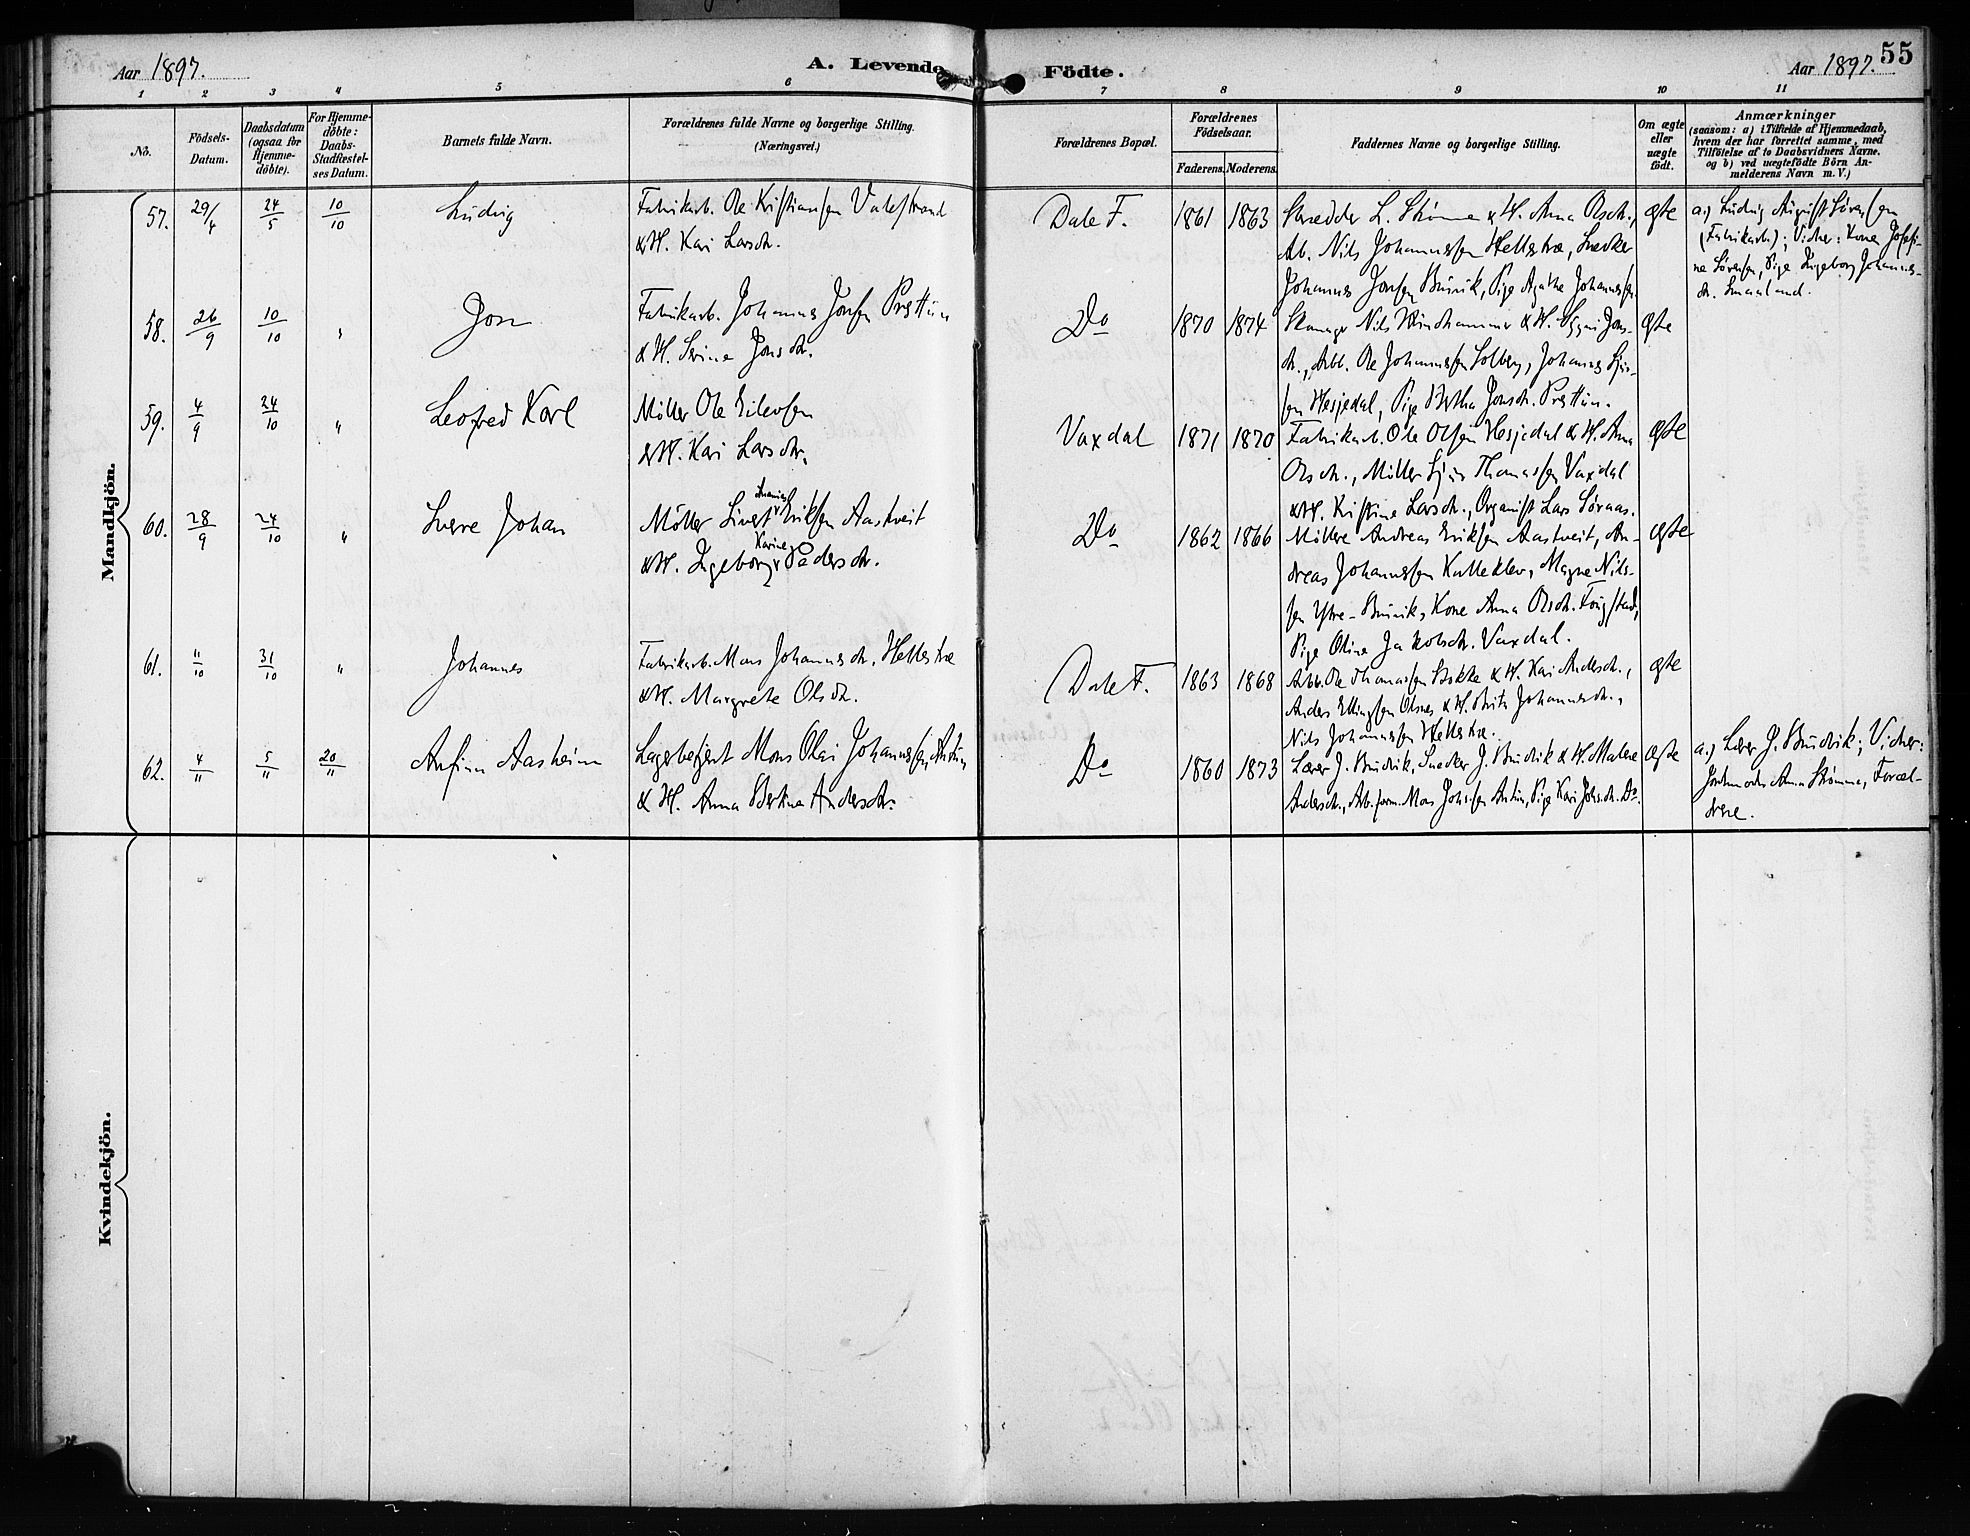 Aar 1897. A. Levende Födte. Aar 1897. 55
1 2 3 4 5 6 7 8 9 10 11
No.
Födsels-Datum.
Daabsdatum (ogsaa for Hjemmedöbte).
For Hjemmedöbte: Daabs-Stadfæstelses Datum.
Barnets fulde Navn.
Forældrenes fulde Navne og borgerlige Stilling. (Næringsvei.)
Forældrenes Bopæl.
Forældrenes Födselsaar.
Faderens. Moderens.
Faddernes Navne og borgerlige Stilling.
Om ægte eller uægte födt.
Anmærkninger
(saasom: a) i Tilfælde af Hjemmedaab,
hvem der har forrettet samme, med
Tilföielse af to Daabsvidners Navne.
og b) ved uægtefödte Börn Anmelderens Navn m. V.)
Mandkjön.
57. 29/4 24/5 10/10 Ludvig
Fabrikarb. Ole Kristiansen Valestrand
& H. Kari Larsdtr.
Dale F. 1861 1863
Skrædder L. Strömme & H. Anna Olsdtr.,
Arb. Nils Johannessen Hellestræ, Snedker
Johannes Jonsen Bruvik, Pige Agathe Johannessen
ægte
a.) Ludvig August Sörensen
(Fabrikarb.); Vidner: Kone Josefine Sörensen, Pige Ingeborg Johannesdtr. Smaaland.
58. 26/9 10/10 " Jon
Fabrikarb. Johannes Jonsen Presttun
& H. Serine Jonsdtr.
Do 1870 1874
Nils
dtr., Arb. Ole Johannessen Solberg, Johannes Sjursen Hesjedal, Pige Bertha Jonsdtr. Presttun.
ægte
59. 4/9 24/10 " Leofred Karl
Möller Ole Eilevsen
& H. Kari Larsdtr.
Vaxdal 1871 1870
Fabrikarb. Ole Olsen Hesjedal & H. Anna
Olsdtr., Möller Sjur Thomassen Vaxdal
& H. Kristine Larsdtr., Organist Lars Söraas.
ægte
60. 28/9 24/10 " Sverre Johan
Möller Sivert Ananias Eriksen Aastveit
& H. Ingeborg Karine Pedersdtr.
Do 1862 1866
Möllere Andreas Eriksen Aastveit, Andreas Johannessen Kalleklev, Magne Nilssen Ytre-Bruvik, Kone Anna Olsdtr.
Pige Oline Jakobsdtr. Vaxdal.
ægte
61. 11/10 31/10 " Johannes
Fabrikarb. Mons Johannesdtr. Hellestræ
& H. Margrete Olsdtr.
Dale F. 1863 1868
Arb. Ole Thomassen Stokke & H. Kari Andersdtr.,
Anders Ellingsen Olsnes & H. Brita Johannesdtr.,
Nils Johannessen Hellestræ.
ægte
62. 4/11 5/11 20/11 Anfinn Aasheim
Lagerbetjent Mons Olai Johannessen Antun
& H. Anna Bertine Andersdtr.
Do 1860 1873
Lærer J. Bruvik, Snedker J. Bruvik & H. Malene
Andersdtr., Arb.form. Mons Johs.sen Antun, Pige Kari Johs.dtr. Do.
ægte
a.) Lærer J. Bruvik; Vidner:
Jordmoder Anna Strömme, Forældrene.
Kvindekjön.